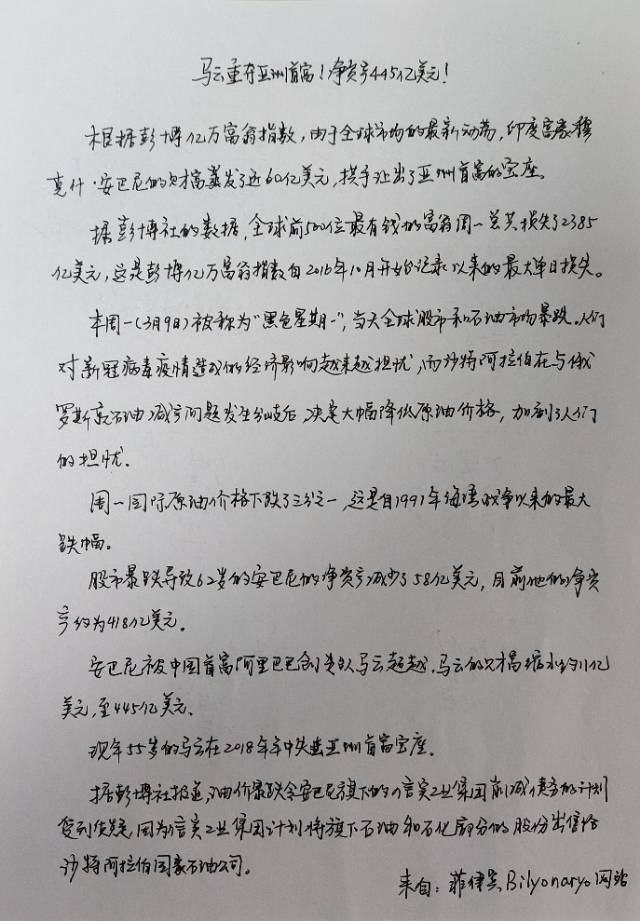 马云重夺亚洲首富！净资产445亿美元！
根据彭博亿万富翁指数，由于全球市场的最新动荡，印度富豪穆
克什·安巴尼的财富蒸发了近60亿美元，拱手让出了亚洲首富的宝座。
据彭博社的数据，全球前500位最有钱的富翁周一总共损失了2385
亿美元，这是彭博亿万富翁指数自2016年10月开始记录以来的最大单日损失。
本周一(3月9日)被称为“黑色星期一”，当天全球股市和石油市场暴跌。人们
对新冠病毒疫情造成的经济影响越来越担忧，而沙特阿拉伯在与俄
罗斯就石油减产问题发生分歧后，决定大幅降低原油价格，加剧了人们
的担忧。
周一国际原油价格下跌了三分之一，这是自1991年海湾战争以来的最大
跌幅。
股市暴跌导致62岁的安巴尼的净资产减少了58亿美元，目前他的净资
产约为418亿美元。
安巴尼被中国首富阿里巴巴创始人马云超越，马云的财富缩水约11亿
美元，至445亿美元。
现年55岁的马云在2018年年中失去亚洲首富宝座。
据彭博社报道，油价暴跌令安巴尼旗下的信实工业集团削减债务的计划
受到质疑，因为信实工业集团计划将旗下石油和石化部分的股份出售给
沙特阿拉伯国家石油公司。
来自：菲律宾Bilyonaryo网站